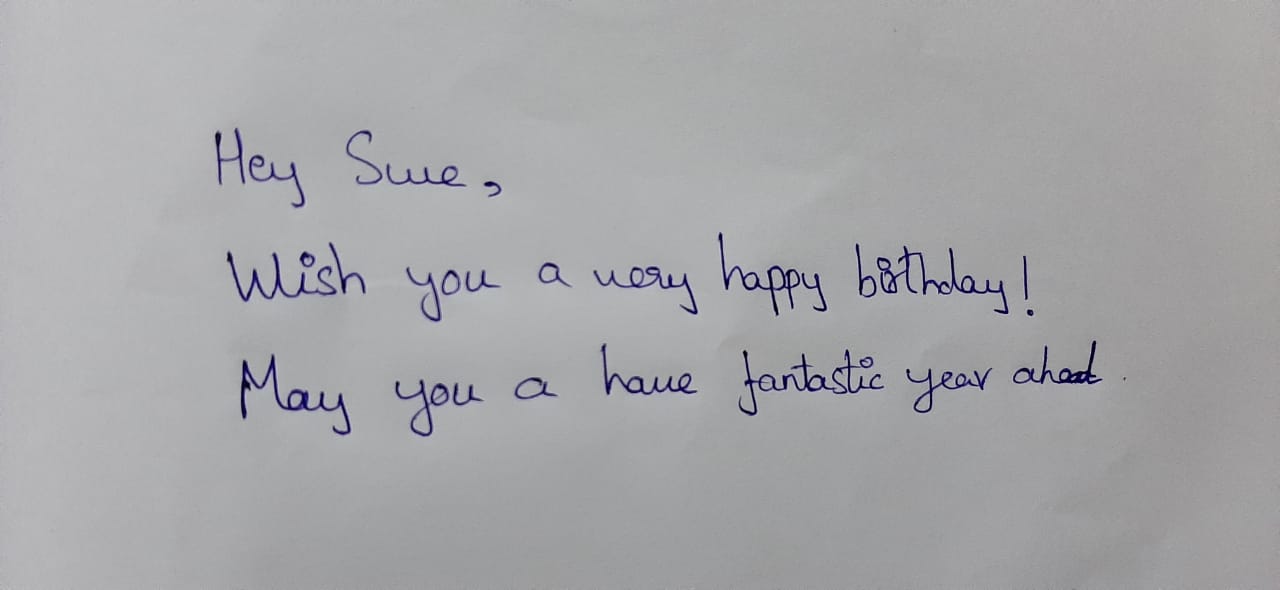 Hey Swe,
Wish you a very happy birthday!
May you a have fantastic year ahead.